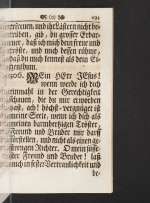 schreiben, gib, du grosser Erbar-
mer, daß ich mich dein freue und
tröste, und mich dessen rühme,
daß du mich kennest als dein Ei-
genthum.
506. MEin HErr JEsus!
wenn werde ich dich
einmahl in der Gerechtigkeit
schauen, die du mir erworben
hast, ach! höchst-vergnüget ist
meine Seele, wenn ich dich als
meinen barmhertzigen Tröster,
Freund und Bruder mir darff
fürstellen, und nicht als einen ge-
strengen Richter. O mein süsse-
ster Freund und Bruder! laß
mich in steter Vertraulichkeit und
be-